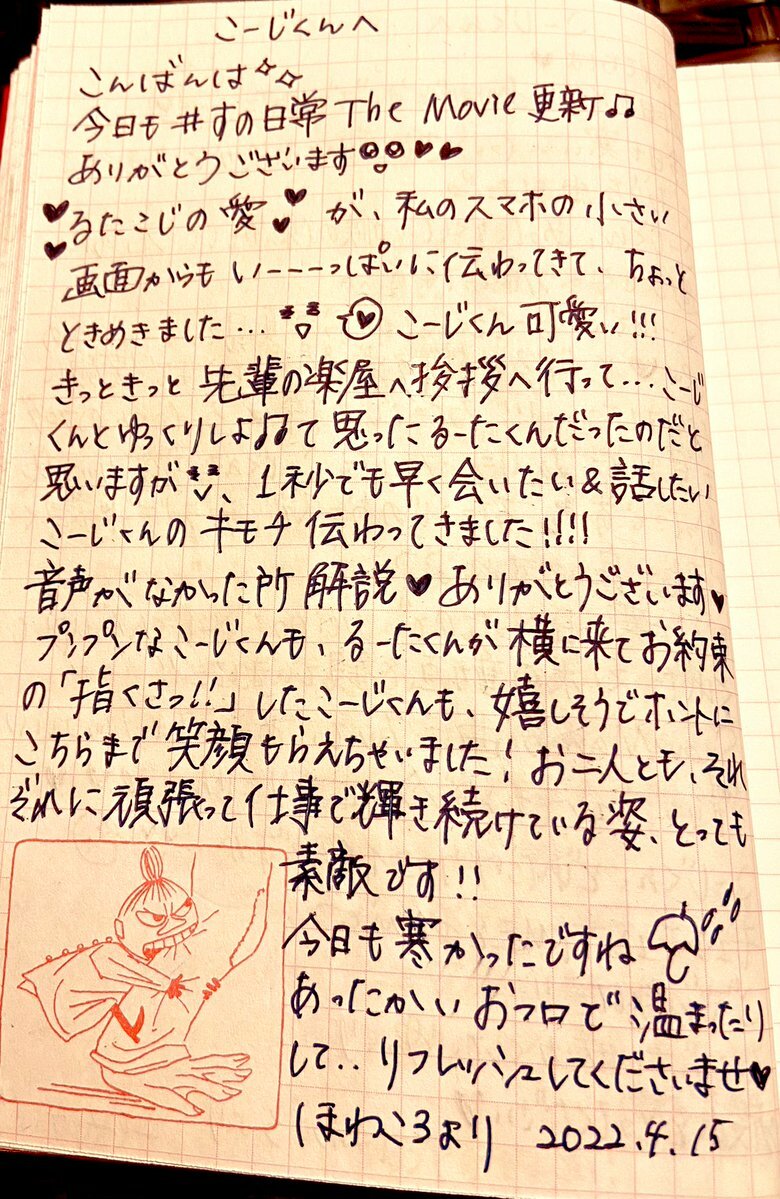 こーじくんへ
こんばんは✧✧
今日も#すの日常 The Movie 更新♫
ありがとうございます♥♥
♥♥るたこじの愛♥♥が、私のスマホの小さい
画面からも いーーーっぱいに伝わってきて、ちょっと
ときめきました… ♥ こーじくん可愛い!!!
きっときっと 先輩の楽屋へ挨拶へ行って…こーじ
くんとゆっくりしよ♫て思ったるーたくんだったのだと
思いますが、1秒でも早く会いたい&話したい
こーじくんの キモチ 伝わってきました!!!!
音声がなかった所 解説♥ ありがとうございます♥
プンプンなこーじくんも、るーたくんが横に来てお約束
の「指くさっ!!」したこーじくんも、嬉しそうでホントに
こちらまで笑顔もらえちゃいました! お二人とも、それ
ぞれに頑張って仕事で輝き続けている姿、とっても
素敵です!!
今日も寒かったですね☂
あったかいおフロで温まったり
して..リフレッシュしてくださいませ♥
ほねころより 2022.4.15